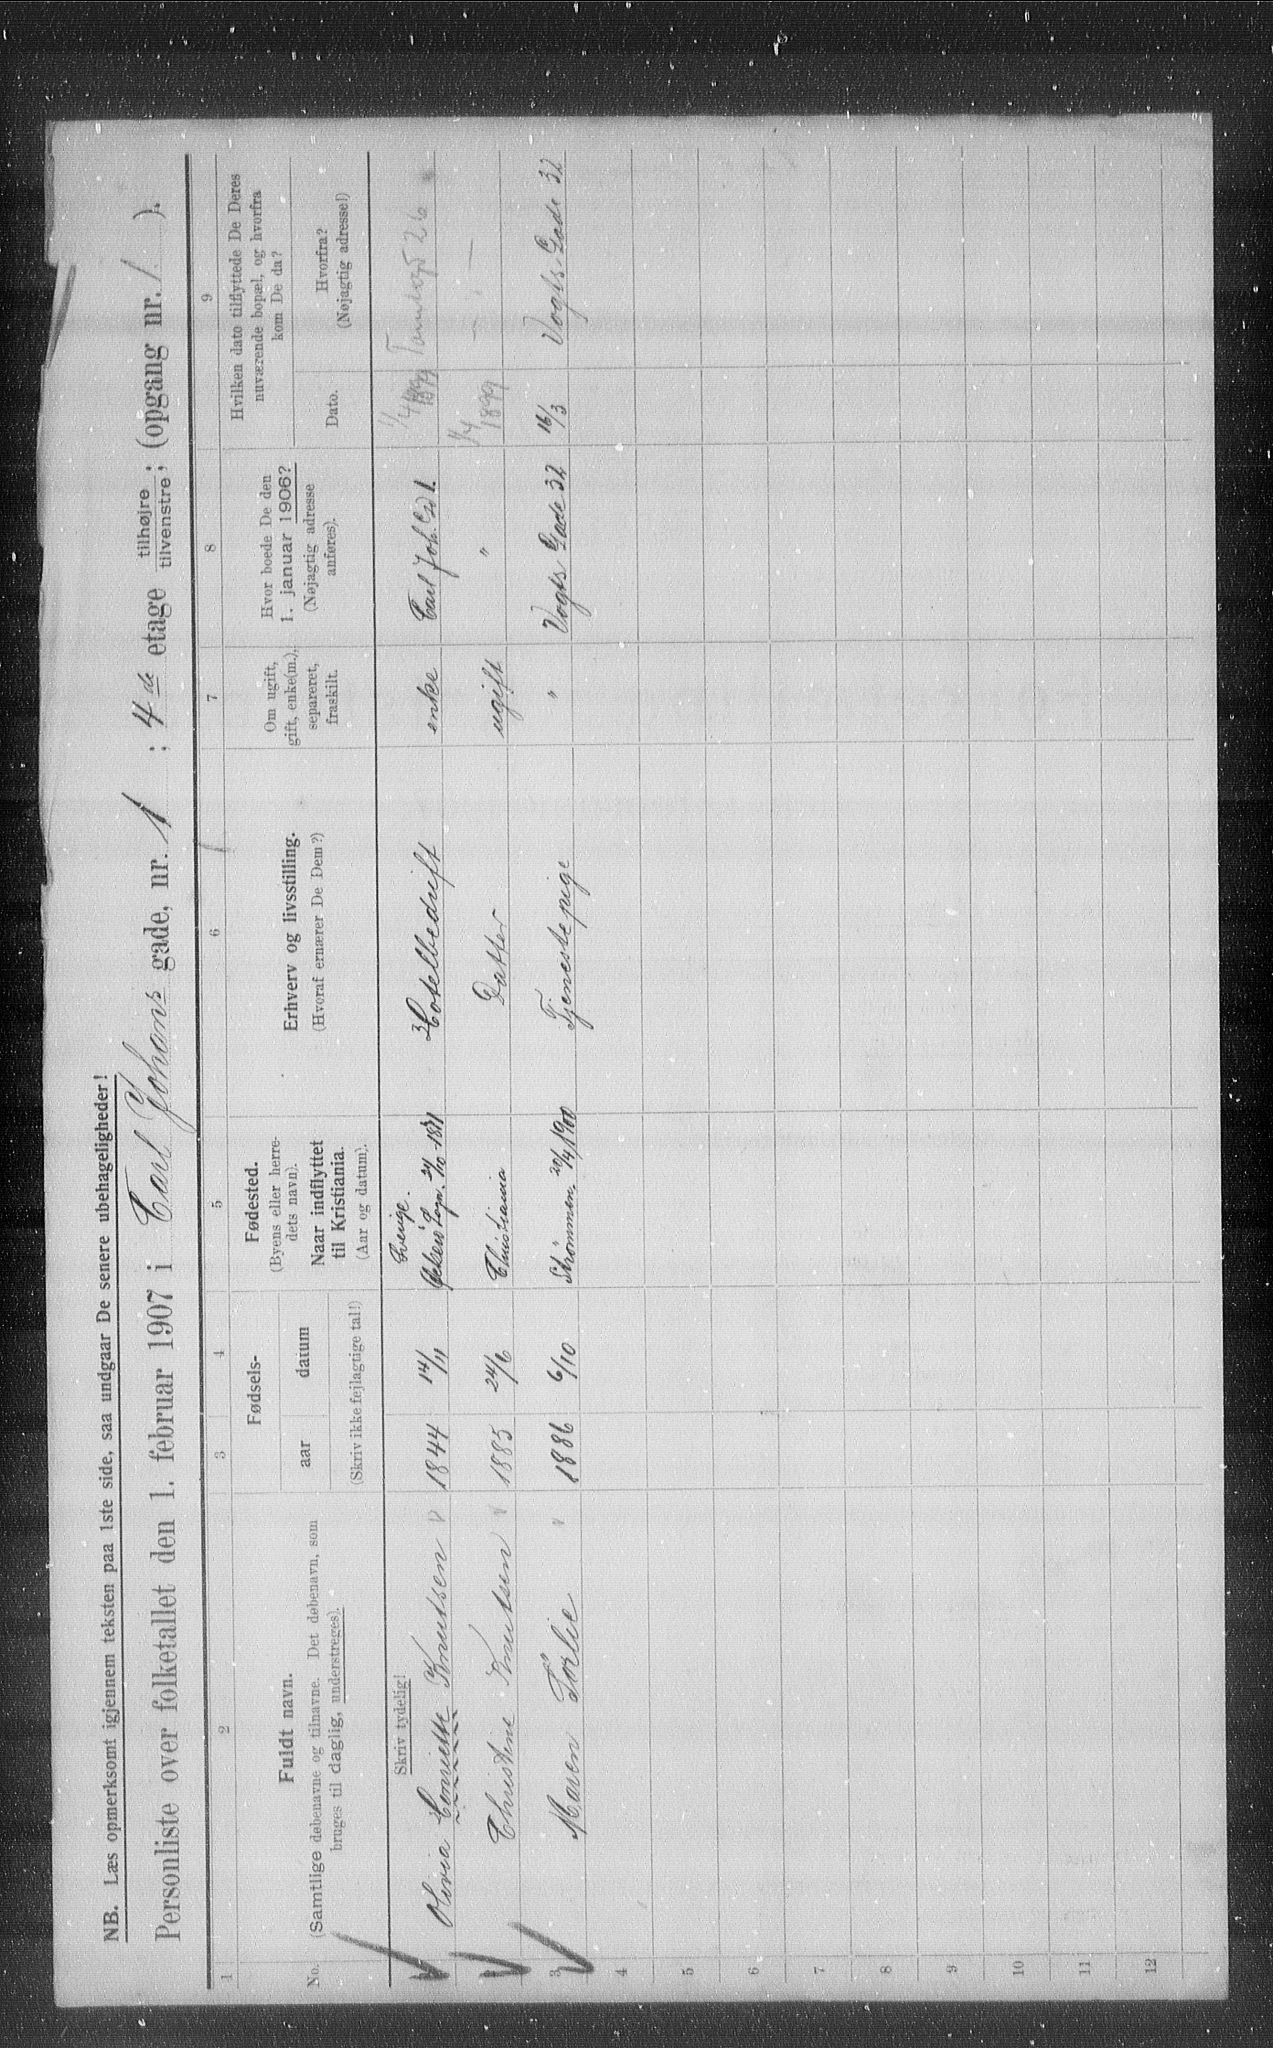 NB. Læs opmerksomt igjennem teksten paa 1ste side, saa undgaar De senere ubehageligheder!
Personliste over folketallet den 1. februar 1907 i Carl Johans gade, nr. 1 ; 4de etage tilhøjre ; tilvenstre ; (opgang nr. 1 ).
1 2 3 4 5 6 7 8 9
No.
Fuldt navn.
(Samtlige døbenavne og tilnavne. Det døbenavn, som
bruges til daglig, understreges).
Fødsels-
aar datum
(Skriv ikke fejlagtige tal!)
Fødested.
(Byens eller herre-
dets navn).
Naar indflyttet
til Kristiania.
(Aar og datum).
Erhverv og livsstilling.
(Hvoraf ernærer De Dem?)
Om ugift,
gift, enke(m.),
separeret,
fraskilt.
Hvor boede De den
1. januar 1906?
(Nøjagtig adresse
anføres).
Hvilken dato tilflyttede De Deres
nuværende bopæl, og hvorfra
kom De da?
Dato.
Hvorfra?
(Nøjagtig adresse!)
Skriv tydelig!
Olivia Henriette Knutsen v 1844 14/11 Sverige. Sogn. 24/10 1871 Hotelbedrift enke Carl Joh. Gd 1. 1/4 1899 Tomtegd 26
Christine Knutsen v 1885 24/6 Christiania Datter ugift " 1/4 1899 — " —
3 Maren Sørlie v 1886 6/10 Strømmen. 20/4 1900 Tjenestepige " Vogts Gade 32 16/3 Vogts Gade 32
4
5
6
7
8
9
10
11
12